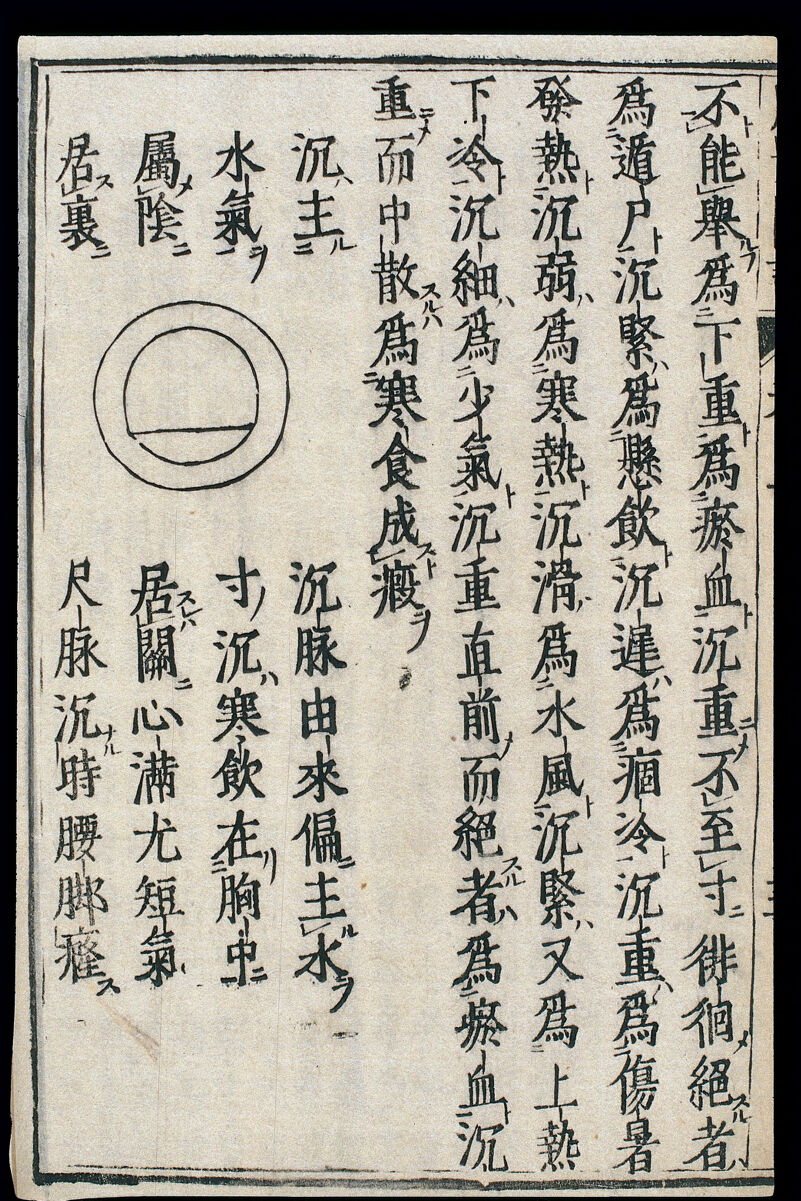 不能舉爲下重爲瘀血沉重不至寸徘徊絕者
爲遁尸沉緊爲懸飲沉遲爲痼冷沉重爲傷暑
發熱沉弱爲寒熱沉滑爲水風沉緊又爲上熱
下冷沉細爲少氣沉重直前而絕者爲瘀血沉
重而中散爲寒食成瘕
沉主
水氣
屬陰
居裏
沉脉由來偏主水
寸沉寒飲在胸中
居關心滿尤短氣
尺脉沉時腰脚